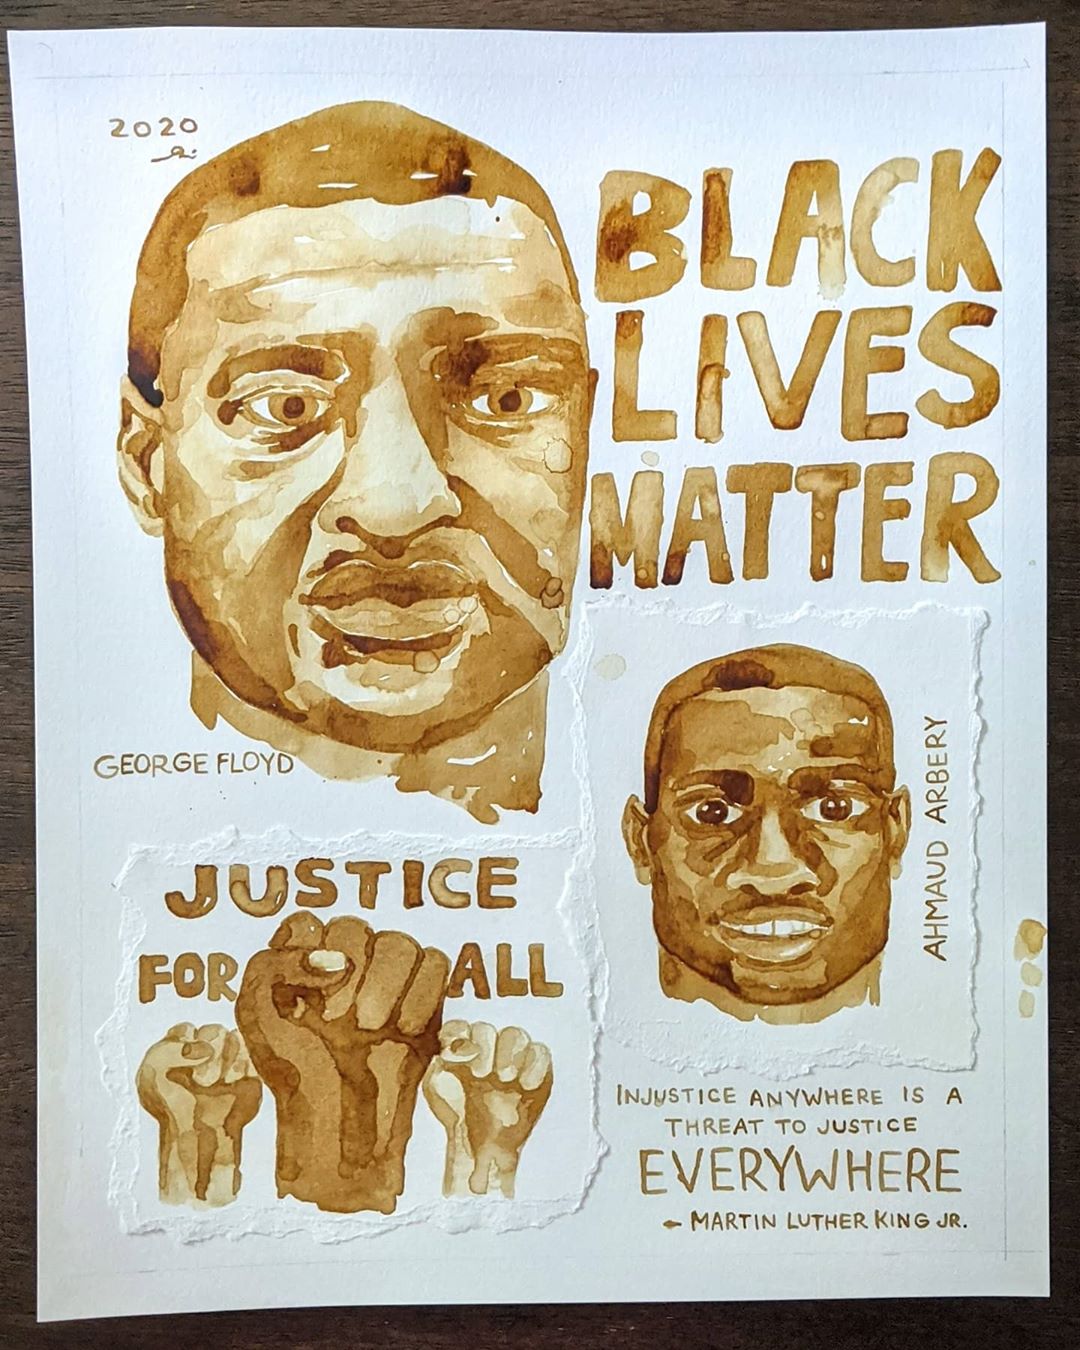 2020
BLACK
LIVES
MATTER
GEORGE FLOYD
AHMAUD ARBERY
JUSTICE
FOR ALL
INJUSTICE ANYWHERE IS A
THREAT TO JUSTICE
EVERYWHERE
- MARTIN LUTHER KING JR.